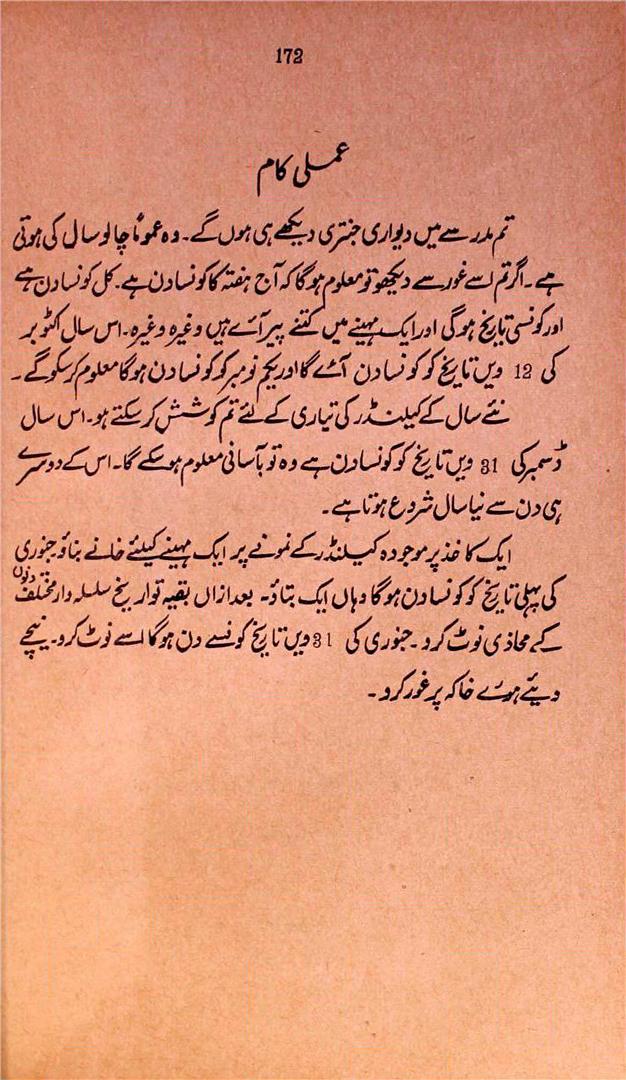 172
عملی کام
تم مدرسے میں دیواری جنتری دیکھے ہی ہوں گے۔ وہ عموماً چالو سال کی ہوتی
ہے۔ اگر تم اسے غور سے دیکھو تو معلوم ہوگا کہ آج ہفتہ کا کونسا دن ہے۔ کل کونسا دن ہے
اور کونسی تاریخ ہوگی اور ایک مہینے میں کتنے پیر آئے ہیں وغیرہ وغیرہ۔ اس سال اکٹوبر
کی 12 ویں تاریخ کو کونسا دن آئے گا اور یکم نومبر کو کونسا دن ہوگا معلوم کرسکو گے۔
نئے سال کے کیلنڈر کی تیاری کے لئے تم کوشش کرسکتے ہو۔ اس سال
ڈسمبر کی 31 ویں تاریخ کو کونسا دن ہے وہ تو بآسانی معلوم ہوسکے گا۔ اس کے دوسرے
ہی دن سے نیا سال شروع ہوتا ہے۔
ایک کاغذ پر موجودہ کیلنڈر کے نمونے پر ایک مہینے کیلئے خانے بناؤ جنوری
کی پہلی تاریخ کو کونسا دن ہوگا وہاں ایک بتاؤ۔ بعد ازاں بقیہ تواریخ سلسلہ وار مختلف دنوں
کے محاذی نوٹ کرو۔ جنوری کی 31 ویں تاریخ کونسے دن ہوگا اسے نوٹ کرو۔ نیچے
دیئے ہوئے خاکہ پر غور کرو۔